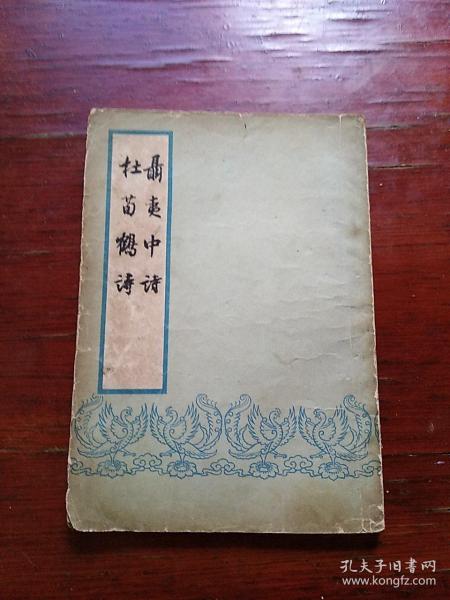 聶夷中诗
杜荀鶴诗
孔夫子旧书网
www.kongfz.com